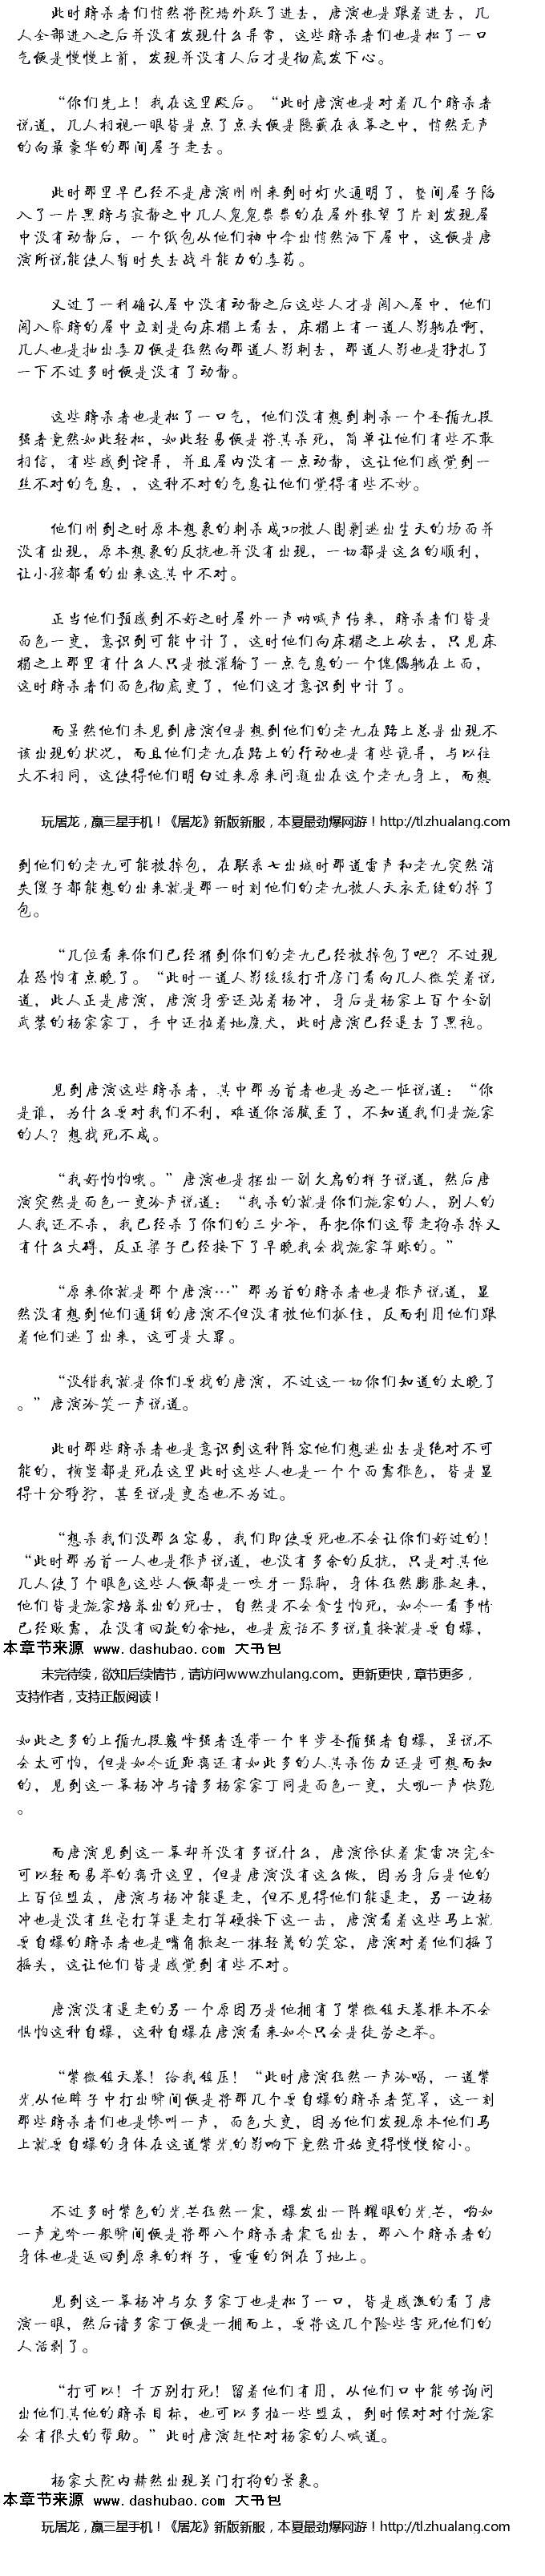 此时暗杀者们悄然将院墙外跃了进去，唐演也是跟着进去，几
人全部进入之后并没有发现什么异常，这些暗杀者们也是松了一口
气便是慢慢上前，发现并没有人后才是彻底发下心。
“你们先上！我在这里殿后。“此时唐演也是对着几个暗杀者
说道，几人相视一眼皆是点了点头便是隐藏在夜幕之中，悄然无声
的向最豪华的那间屋子走去。
此时那里早已经不是唐演刚刚来到时灯火通明了，整间屋子陷
入了一片黑暗与寂静之中几人鬼鬼祟祟的在屋外张望了片刻发现屋
中没有动静后，一个纸包从他们袖中拿出悄然洒下屋中，这便是唐
演所说能使人暂时失去战斗能力的毒药。
又过了一刻确认屋中没有动静之后这些人才是闯入屋中，他们
闯入昏暗的屋中立刻是向床榻上看去，床榻上有一道人影躺在啊，
几人也是抽出毒刀便是猛然向那道人影刺去，那道人影也是挣扎了
一下不过多时便是没有了动静。
这些暗杀者也是松了一口气，他们没有想到刺杀一个圣循九段
强者竟然如此轻松，如此轻易便是将其杀死，简单让他们有些不敢
相信，有些感到诧异，并且屋内没有一点动静，这让他们感觉到一
丝不对的气息，，这种不对的气息让他们觉得有些不妙。
他们刚到之时原本想象的刺杀成功被人围剿逃出生天的场面并
没有出现，原本想象的反抗也并没有出现，一切都是这么的顺利，
让小孩都看的出来这其中不对。
正当他们预感到不好之时屋外一声呐喊声传来，暗杀者们皆是
面色一变，意识到可能中计了，这时他们向床榻之上砍去，只见床
榻之上那里有什么人只是被灌输了一点气息的一个傀儡躺在上面，
这时暗杀者们面色彻底变了，他们这才意识到中计了。
而虽然他们未见到唐演但是想到他们的老九在路上总是出现不
该出现的状况，而且他们老九在路上的行动也是有些诡异，与以往
大不相同，这使得他们明白过来原来问题出在这个老九身上，而想
玩屠龙，赢三星手机！《屠龙》新版新服，本夏最劲爆网游！http://tl.zhualang.com
到他们的老九可能被掉包，在联系七出城时那道雷声和老九突然消
失傻子都能想的出来就是那一时刻他们的老九被人天衣无缝的掉了
包。
“几位看来你们已经猜到你们的老九已经被掉包了吧？不过现
在恐怕有点晚了。“此时一道人影缓缓打开房门看向几人微笑着说
道，此人正是唐演，唐演身旁还站着杨冲，身后是杨家上百个全副
武装的杨家家丁，手中还拉着地魔犬，此时唐演已经退去了黑袍。
见到唐演这些暗杀者，其中那为首者也是为之一怔说道：“你
是谁，为什么要对我们不利，难道你活腻歪了，不知道我们是施家
的人？想找死不成。
“我好怕怕哦。”唐演也是摆出一副欠扁的样子说道，然后唐
演突然是面色一变冷声说道：“我杀的就是你们施家的人，别人的
人我还不杀，我已经杀了你们的三少爷，再把你们这帮走狗杀掉又
有什么大碍，反正梁子已经接下了早晚我会找施家算账的。”
“原来你就是那个唐演…”那为首的暗杀者也是狠声说道，显
然没有想到他们通缉的唐演不但没有被他们抓住，反而利用他们跟
着他们逃了出来，这可是大罪。
“没错我就是你们要找的唐演，不过这一切你们知道的太晚了
。”唐演冷笑一声说道。
此时那些暗杀者也是意识到这种阵容他们想逃出去是绝对不可
能的，横竖都是死在这里此时这些人也是一个个面露狠色，皆是显
得十分狰狞，甚至说是变态也不为过。
“想杀我们没那么容易，我们即使要死也不会让你们好过的！
“此时那为首一人也是狠声说道，也没有多余的反抗，只是对其他
几人使了个眼色这些人便都是一咬牙一跺脚，身体猛然膨胀起来，
他们皆是施家培养出的死士，自然是不会贪生怕死，如今一看事情
已经败露，在没有回旋的余地，也是废话不多说直接就是要自爆，
本章节来源 www.dashubao.com 大书包
未完待续，欲知后续情节，请访问www.zhulang.com。更新更快，章节更多，
支持作者，支持正版阅读！
如此之多的上循九段巅峰强者连带一个半步圣循强者自爆，虽说不
会太可怕，但是如今近距离还有如此多的人其杀伤力还是可想而知
的，见到这一幕杨冲与诸多杨家家丁同是面色一变，大吼一声快跑
。
而唐演见到这一幕却并没有多说什么，唐演依仗着震雷决完全
可以轻而易举的离开这里，但是唐演没有这么做，因为身后是他的
上百位盟友，唐演与杨冲能退走，但不见得他们能退走，另一边杨
冲也是没有丝毫打算退走打算硬接下这一击，唐演看着这些马上就
要自爆的暗杀者也是嘴角掀起一抹轻蔑的笑容，唐演对着他们摇了
摇头，这让他们皆是感觉到有些不对。
唐演没有退走的另一个原因乃是他拥有了紫微镇天卷根本不会
惧怕这种自爆，这种自爆在唐演看来如今只会是徒劳之举。
“紫微镇天卷！给我镇压！“此时唐演猛然一声冷喝，一道紫
光从他眸子中打出瞬间便是将那几个要自爆的暗杀者笼罩，这一刻
那些暗杀者们也是惨叫一声，面色大变，因为他们发现原本他们马
上就要自爆的身体在这道紫光的影响下竟然开始变得慢慢缩小。
不过多时紫色的光芒猛然一震，爆发出一阵耀眼的光芒，哟如
一声龙吟一般瞬间便是将那八个暗杀者震飞出去，那八个暗杀者的
身体也是返回到原来的样子，重重的倒在了地上。
见到这一幕杨冲与众多家丁也是松了一口，皆是感激的看了唐
演一眼，然后诸多家丁便是一拥而上，要将这几个险些害死他们的
人活剥了。
“打可以！千万别打死！留着他们有用，从他们口中能够询问
出他们其他的暗杀目标，也可以多拉一些盟友，到时候对对付施家
会有很大的帮助。”此时唐演赶忙对杨家的人喊道。
杨家大院内赫然出现关门打狗的景象。
本章节来源 www.dashubao.com 大书包
玩屠龙，赢三星手机！《屠龙》新版新服，本夏最劲爆网游！http://tl.zhualang.com